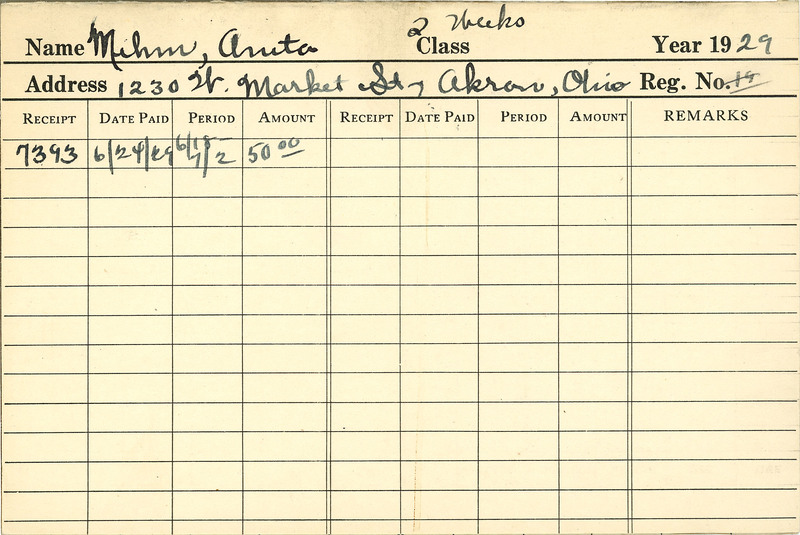 2 Weeks
Name Mihm, Anita Class Year 1929
Address 1230 W. Market St, Akron, Ohio Reg. No. 19
RECEIPT DATE PAID PERIOD AMOUNT RECEIPT DATE PAID PERIOD AMOUNT REMARKS
7393 6/24/29 6/18-7/2 50 00